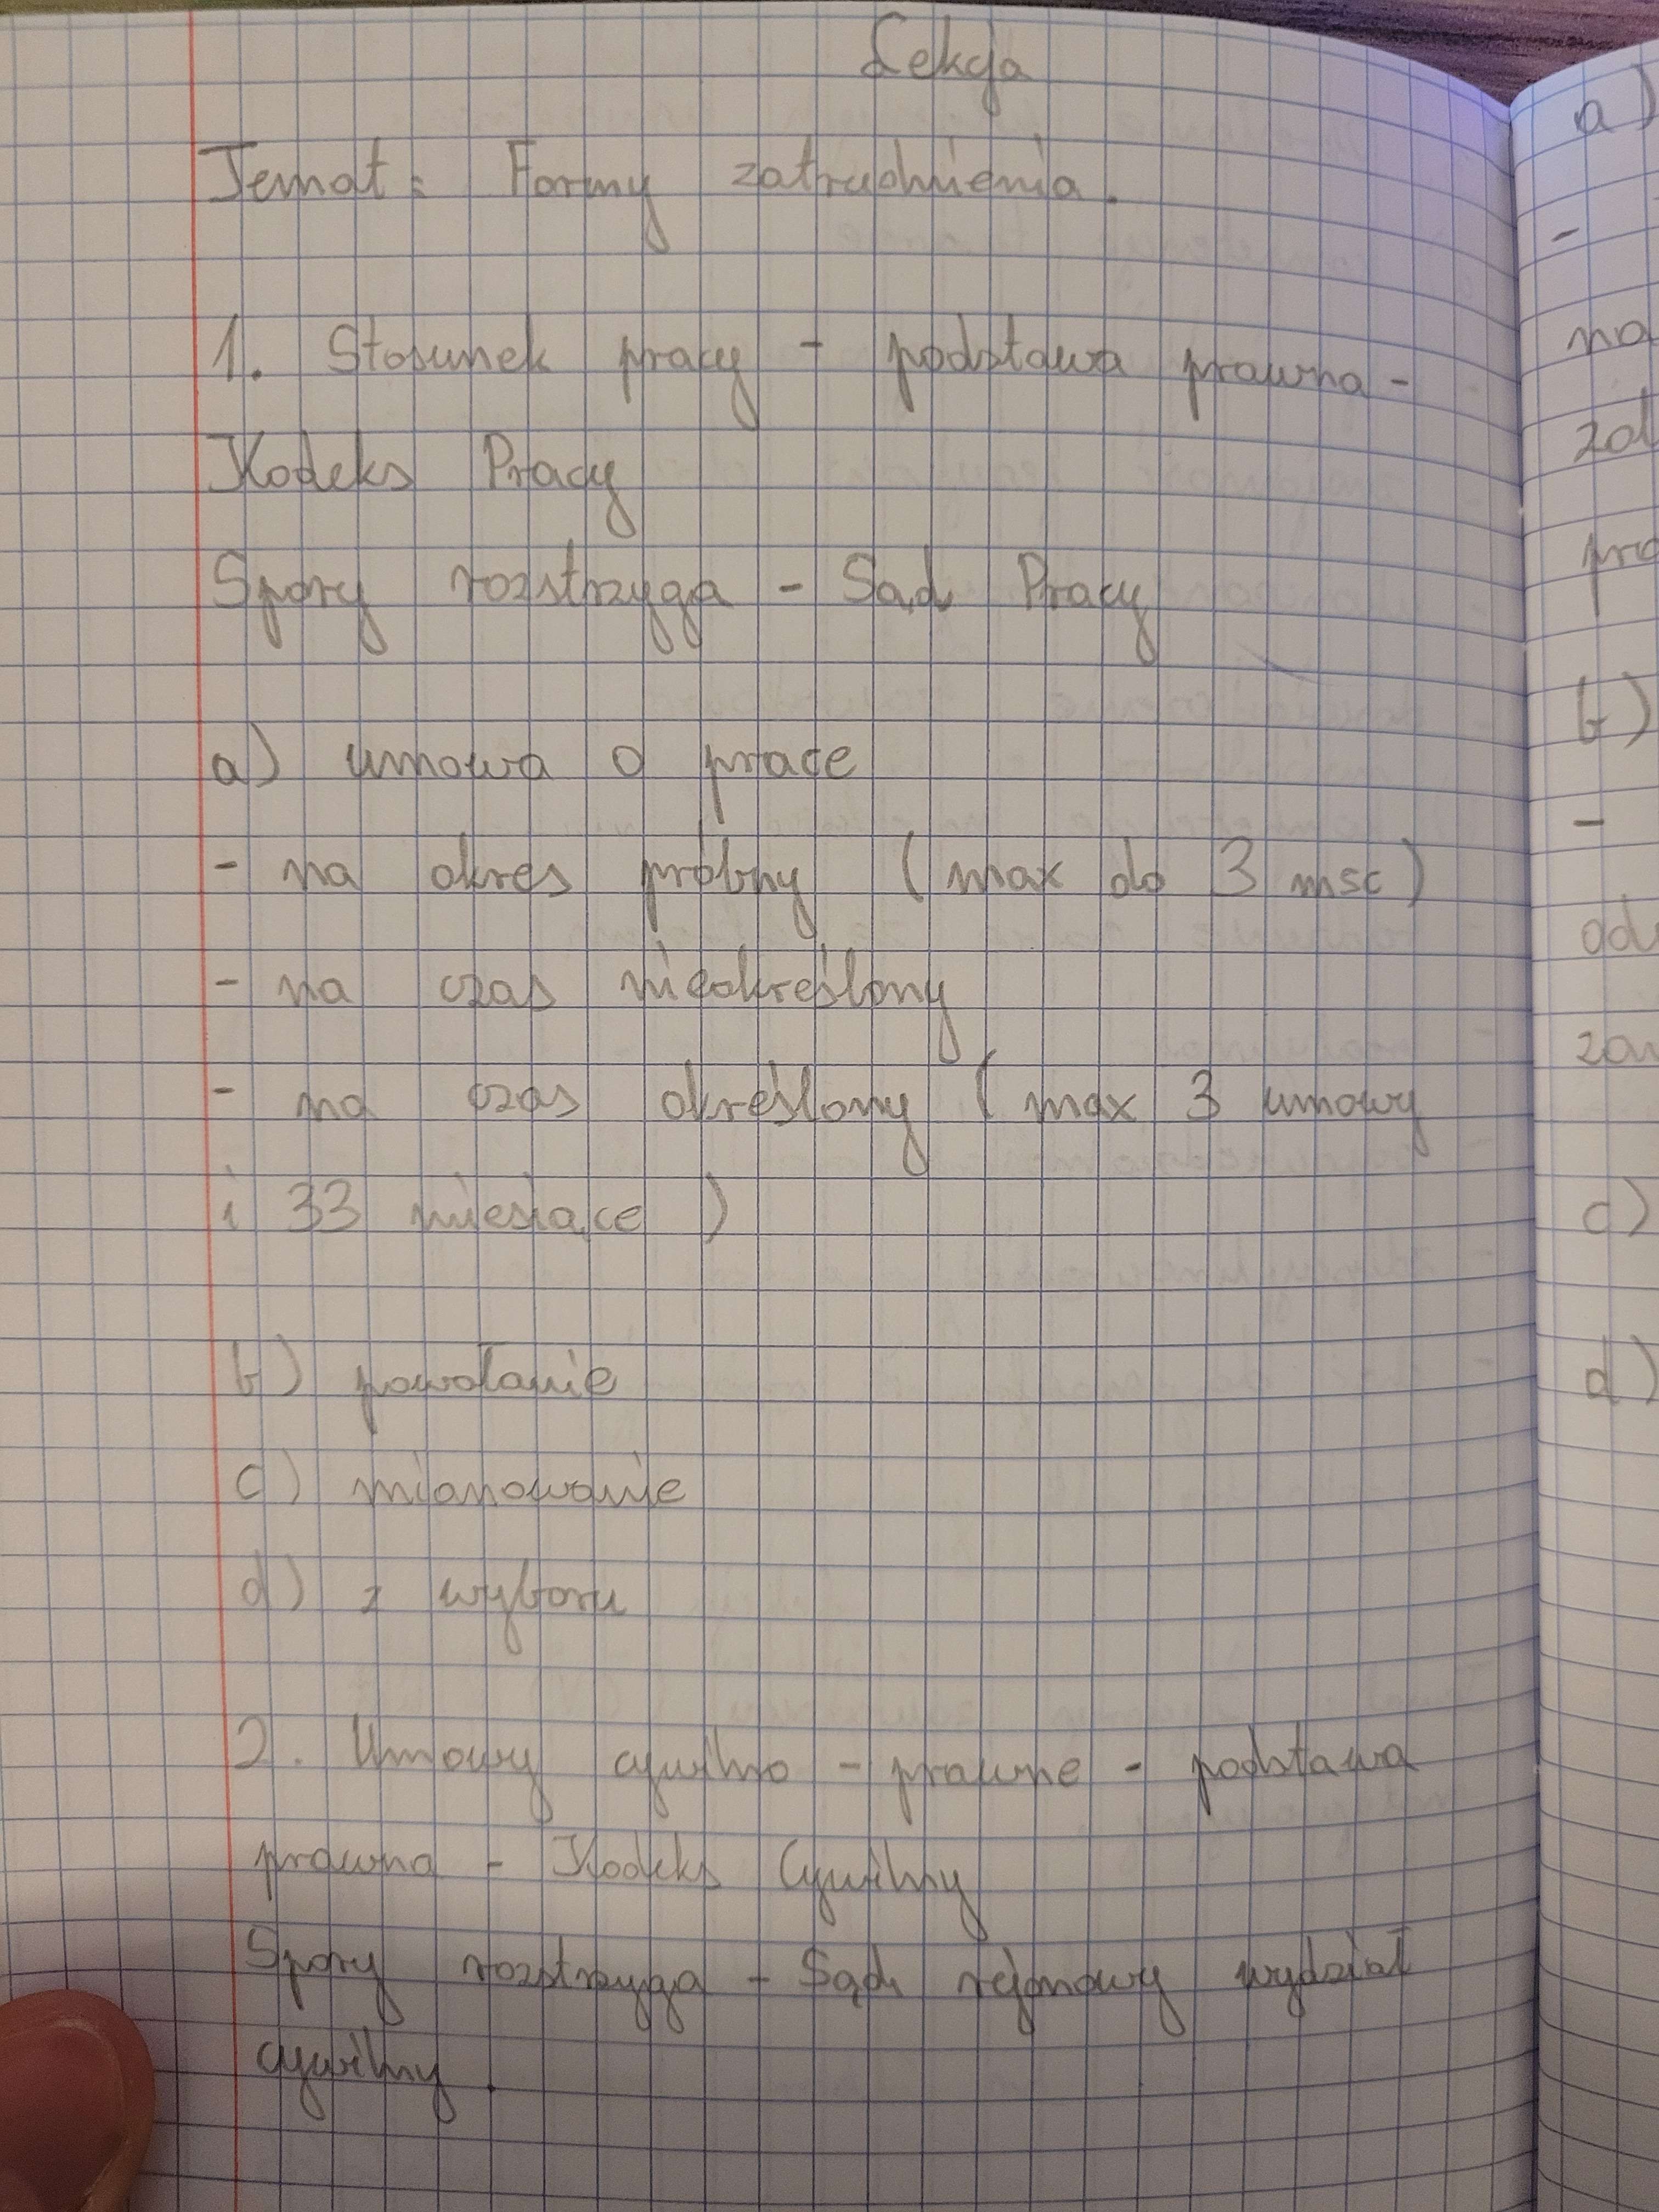 Lekcja
Temat: Formy zatrudnienia.
1. Stosunek pracy - podstawa prawna -
Kodeks Pracy
Spory rozstrzyga - Sąd Pracy
a) umowa o pracę
- na okres próbny (max do 3 msc)
- na czas nieokreślony
- na czas określony (max 3 umowy
i 33 miesiące)
b) powołanie
c) mianowanie
d) z wyboru
2. Umowy cywilno - prawne - podstawa
prawna - Kodeks Cywilny
Spory rozstrzyga - Sąd rejonowy wydział
cywilny.
a)
-
na
b)
-
c)
d)